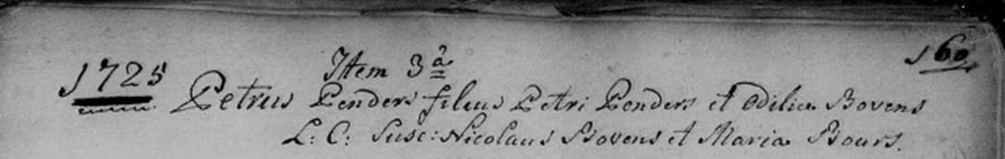 160
1725 Item 3ª
Petrus Penders filius Petri Penders et Odiliæ Bovens
L: C: Susc: Nicolaus Bovens et Maria Bours.